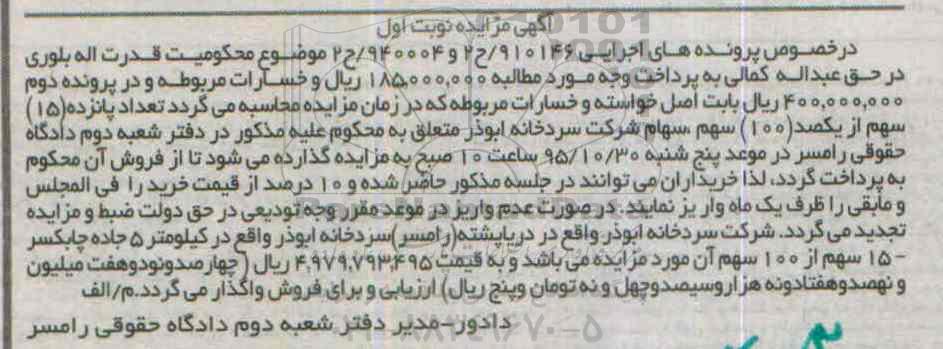 آگهی مزایده نوبت اول
درخصوص پرونده های اجرایی ۹۱۰۱۴۶/ح۲ و ۹۴۰۰۰۴/ح۲ موضوع محکومیت قدرت اله بلوری
در حق عبداله کمالی به پرداخت وجه مورد مطالبه ۱۸۵,۰۰۰,۰۰۰ ریال و خسارات مربوطه و در پرونده دوم
۴۰۰,۰۰۰,۰۰۰ ریال بابت اصل خواسته و خسارات مربوطه که در زمان مزایده محاسبه می گردد تعداد پانزده(۱۵)
سهم از یکصد(۱۰۰) سهم سهام شرکت سردخانه ابوذر متعلق به محکوم علیه مذکور در دفتر شعبه دوم دادگاه
حقوقی رامسر در موعد پنج شنبه ۹۵/۱۰/۳۰ ساعت ۱۰ صبح به مزایده گذارده می شود تا از فروش آن محکوم
به پرداخت گردد، لذا خریداران می توانند در جلسه مذکور حاضر شده و ۱۰ درصد از قیمت خرید را فی المجلس
و مابقی را ظرف یک ماه واریز نمایند. در صورت عدم واریز در موعد مقرر وجه تودیعی در حق دولت ضبط و مزایده
تجدید می گردد. شرکت سردخانه ابوذر واقع در دریاپشته(رامسر)سردخانه ابوذر واقع در کیلومتر ۵ جاده چابکسر
-۱۵ سهم از ۱۰۰ سهم آن مورد مزایده می باشد و به قیمت ۴,۹۷۹,۷۹۳,۴۹۵ ریال (چهارصدونودوهفت میلیون
و نهصدوهفتادونه هزاروسیصدوچهل و نه تومان وپنج ریال) ارزیابی و برای فروش واگذار می گردد.م/الف
دادور-مدیر دفتر شعبه دوم دادگاه حقوقی رامسر